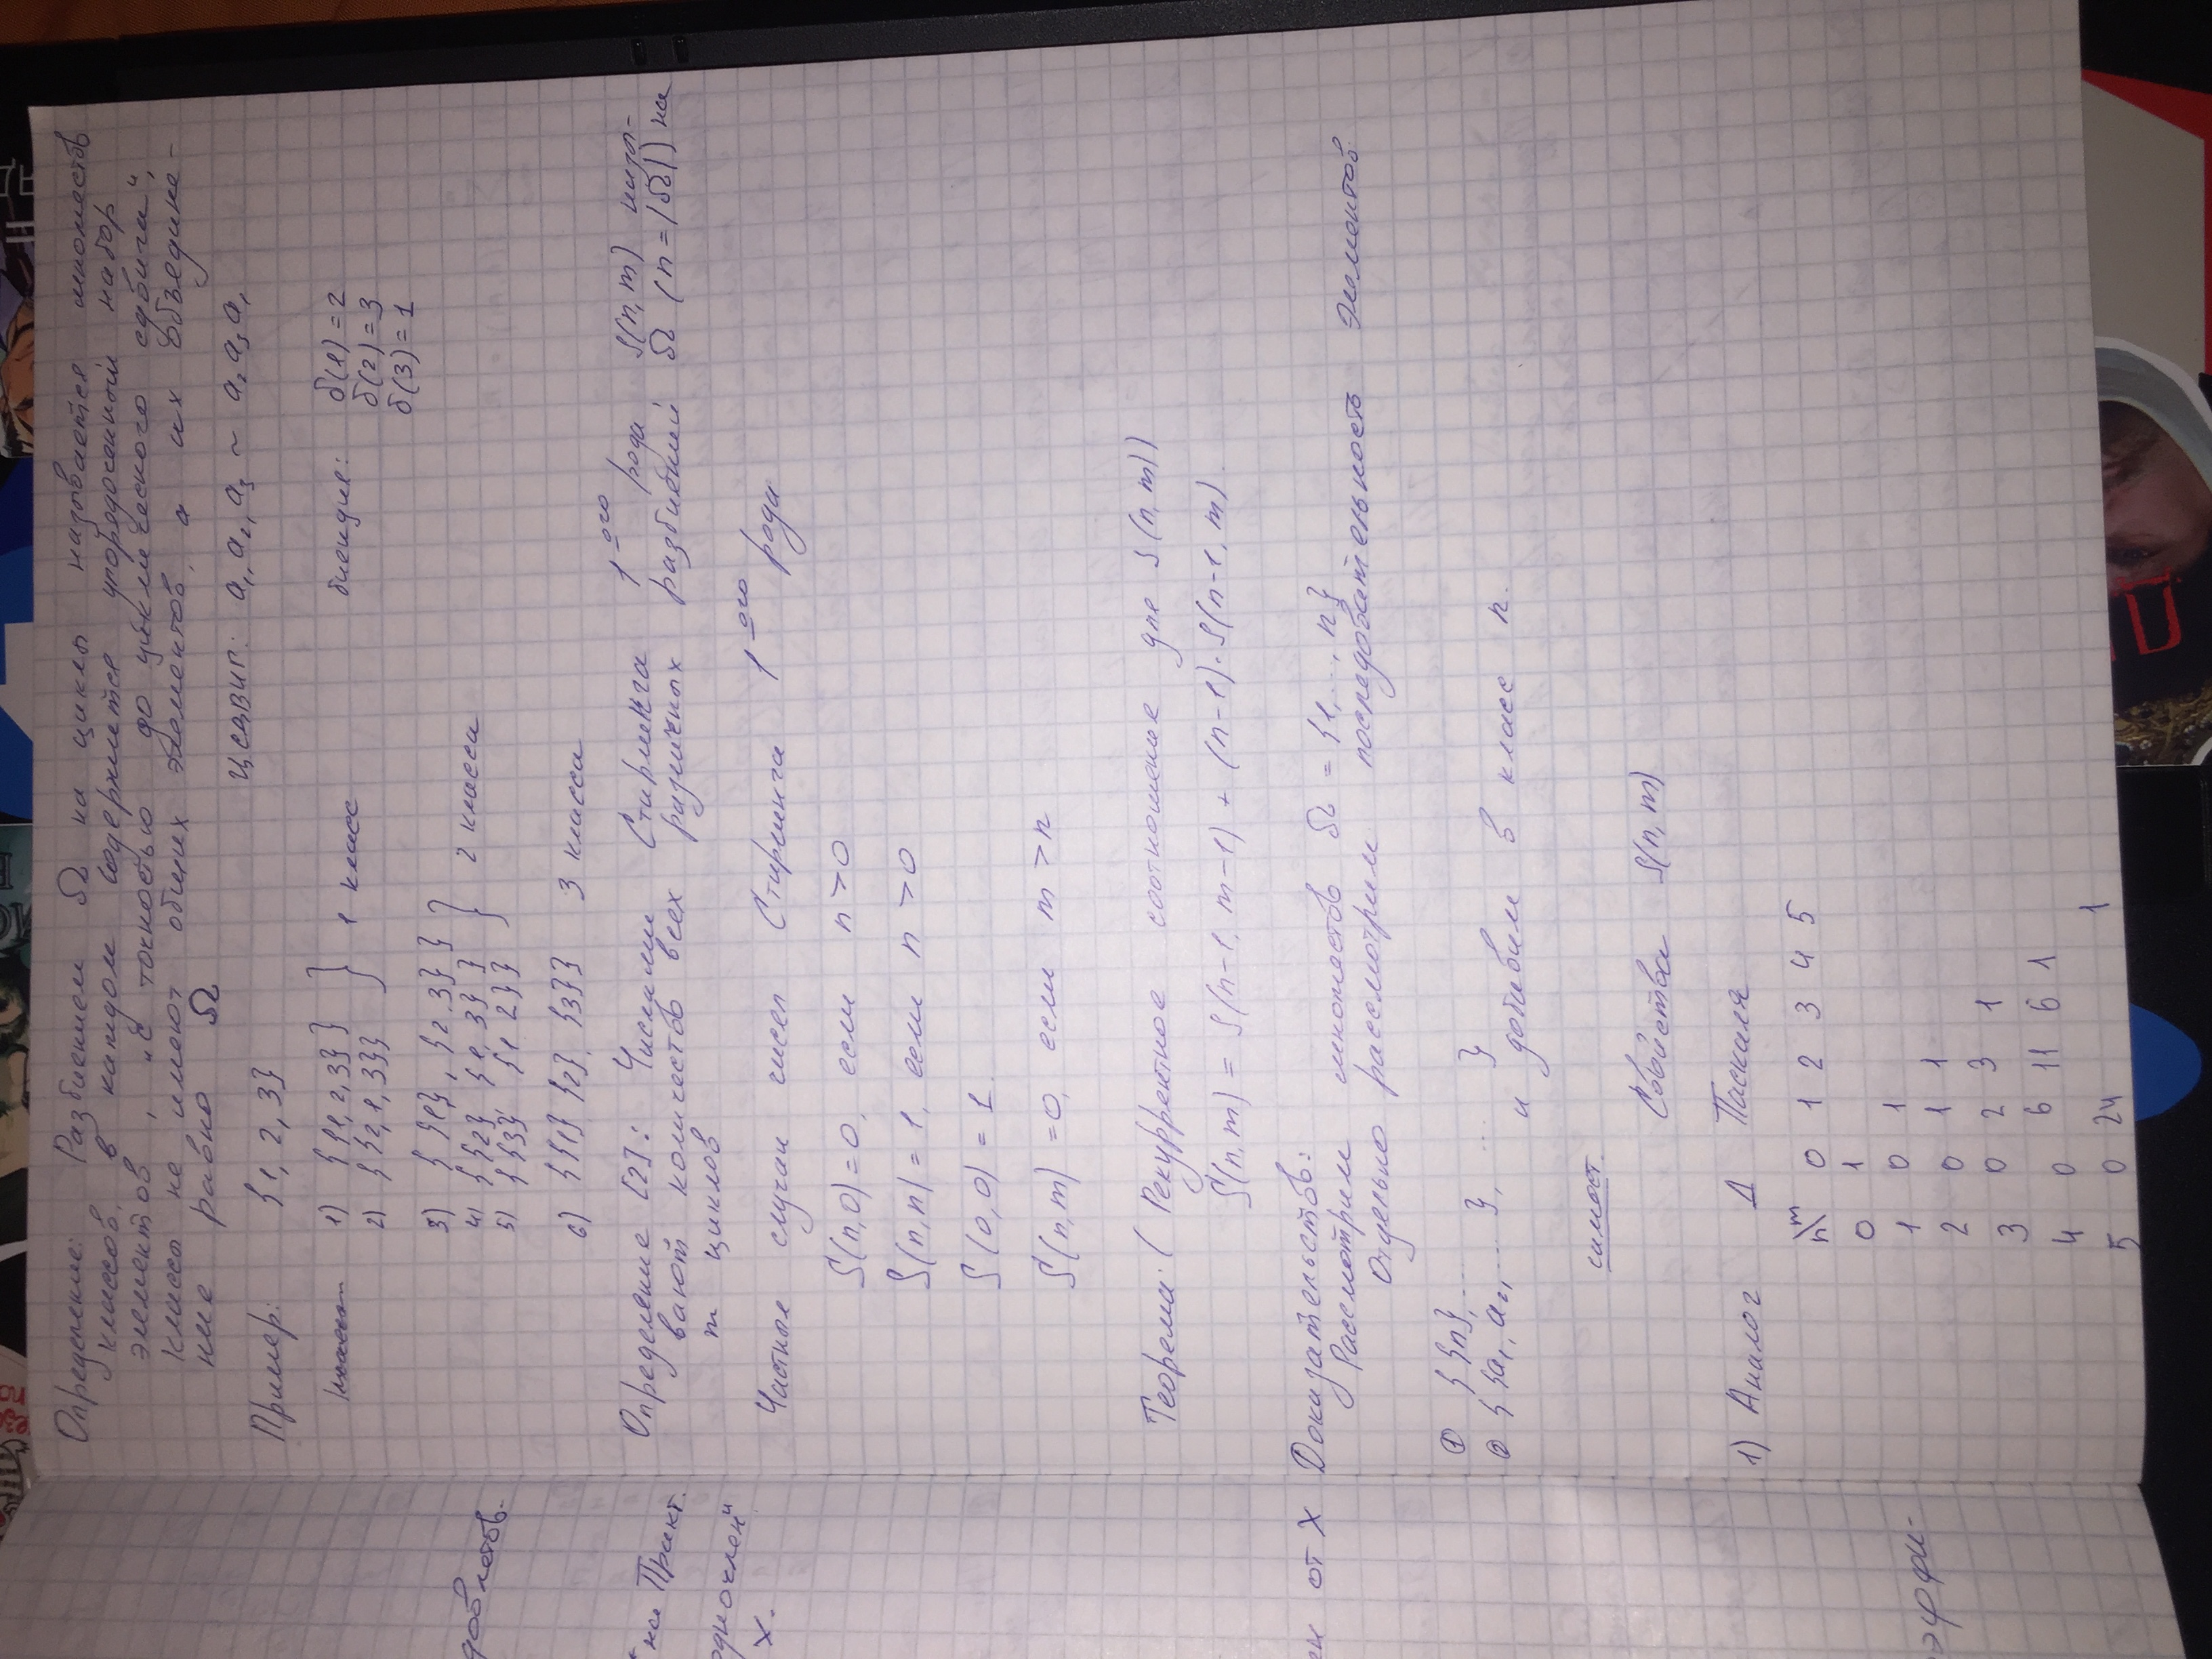 Определение: Разбиением Ω на циклы называется множеств
классов, в каждом содержится упорядоченный набор
элементов, „с точностью до циклического сдвига",
классы не имеют общих элементов, а их объедине-
ние равно Ω
ц сдвиг: a₁, a₂, a₃ ~ a₂ a₃ a₁
Пример: {1, 2, 3}
1) {{1, 2, 3}}
2) {{2, 1, 3}}
1 класс
биекция: б(1) = 2
б(2) = 3
б(3) = 1
3) {{1}, {2, 3}}
4) {{2} {1, 3}}
5) {{3} {1 2}}
2 класса
6) {{1} {2}, {3}} 3 класса
Определение [2]: Числами Стирлинга 1ᵒᵍᵒ рода S(n, m) назы-
вают количество всех различных разбиений Ω (n = |Ω|) на
m циклов
Частные случаи чисел Стирлинга 1ᵒᵍᵒ рода
S(n, 0) = 0, если n > 0
S(n, n) = 1, если n > 0
S(0, 0) = 1.
S(n, m) = 0, если m > n
Теорема: (Рекуррентное соотношение для S(n, m))
S(n, m) = S(n-1, m-1) + (n-1)·S(n-1, m).
Доказательств:
Рассмотрим множеств Ω = {1, ..., n}
Отдельно рассмотрим последовательность элементов
① {{n}, ...
② {{a₁, a₂, ... }, ... }
и добавим в класс n.
самост.
Свойства S(n, m)
1) Аналог Δ Паскаля
n\m 0 1 2 3 4 5
0 1
1 0 1
2 0 1 1
3 0 2 3 1
4 0 6 11 6 1
5 0 24 1
на Практ.
одночлен"
x.
от X
эффи-